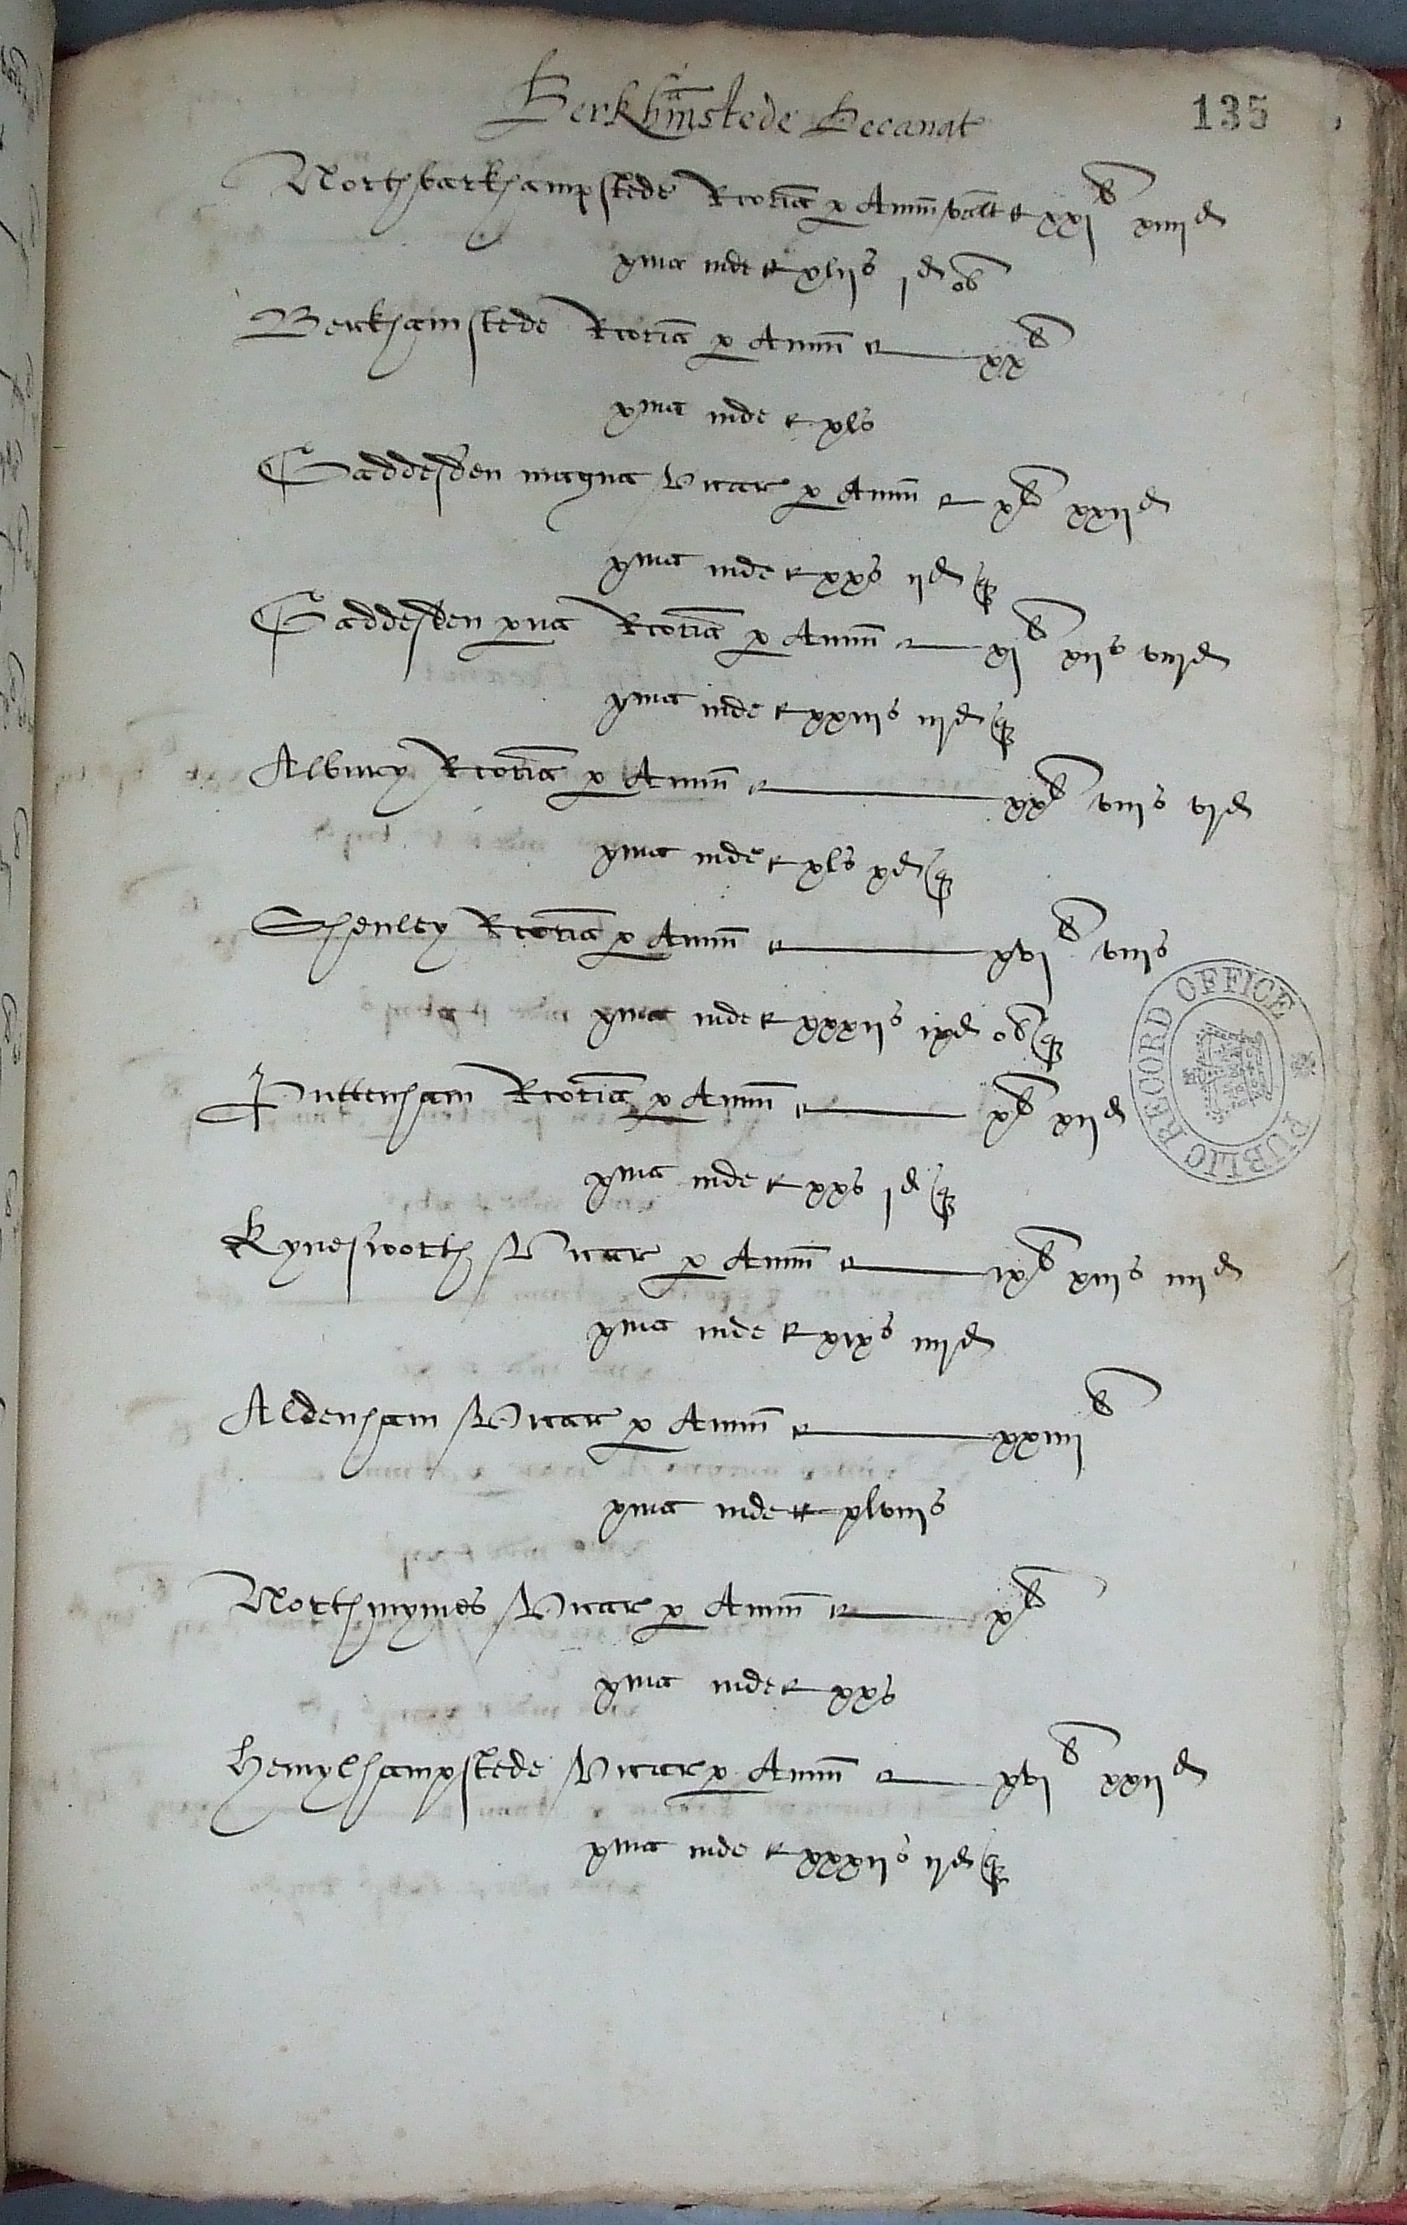 Berkhamstede Decanat
135
Northbarkhampstede Rcoria p Annu valt & xxj li xiiij d
xma inde & xlij s j d ob
Berkhamstede Rcoria p Annu & xx li
xma inde & xl s
Gaddesden magna Vicar p Annu & x li xxij d
xma inde & xx s ij d q
Gaddesden pva Rcoria p Annu & xj li xij s viij d
xma inde & xxiij s iij d q
Albury Rcoria p Annu & xx li viij s vj d
xma inde & xl s x d q
Shenley Rcoria p Annu & xvj li viij s
xma inde & xxxij s ix d ob q
Puttenham Rcoria p Annu & x li xij d
xma inde & xx s j d q
Kynesworth Vicar p Annu & ix li xiij s iiij d
xma inde & xix s iiij d
Aldenham Vicar p Annu & xxiiij li
xma inde & xlviij s
Northmymes Vicar p Annu & x li
xma inde & xx s
Hemylhampstede Vicar p Annu & xvj li xxij d
xma inde & xxxij s ij d q
PUBLIC RECORD OFFICE